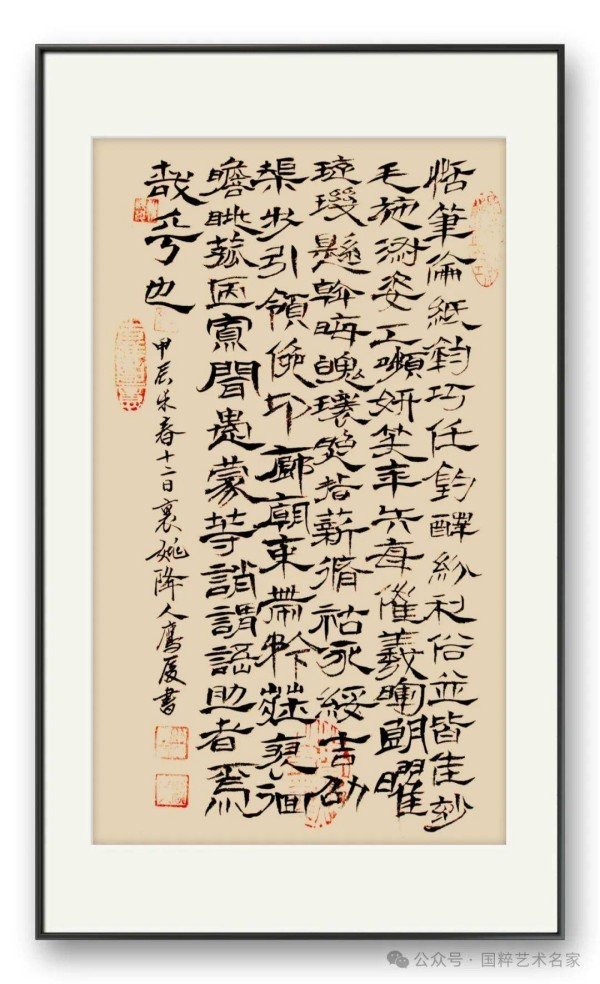 恬筆倫紙鈞巧任釣釋紛利俗並皆佳玅
毛施淑姿工嚬妍笑年矢每催羲暉朗曜
琁璣懸斡晦魄環照指薪脩祜永綏吉劭
渠步引領俛仰廊廟束帶矜莊裵徊
瞻眺孤陋寡聞愚蒙等誚謂語助者焉
哉乎也
甲辰年春十二日姚降人鷹廈書
公众号·国粹艺术名家